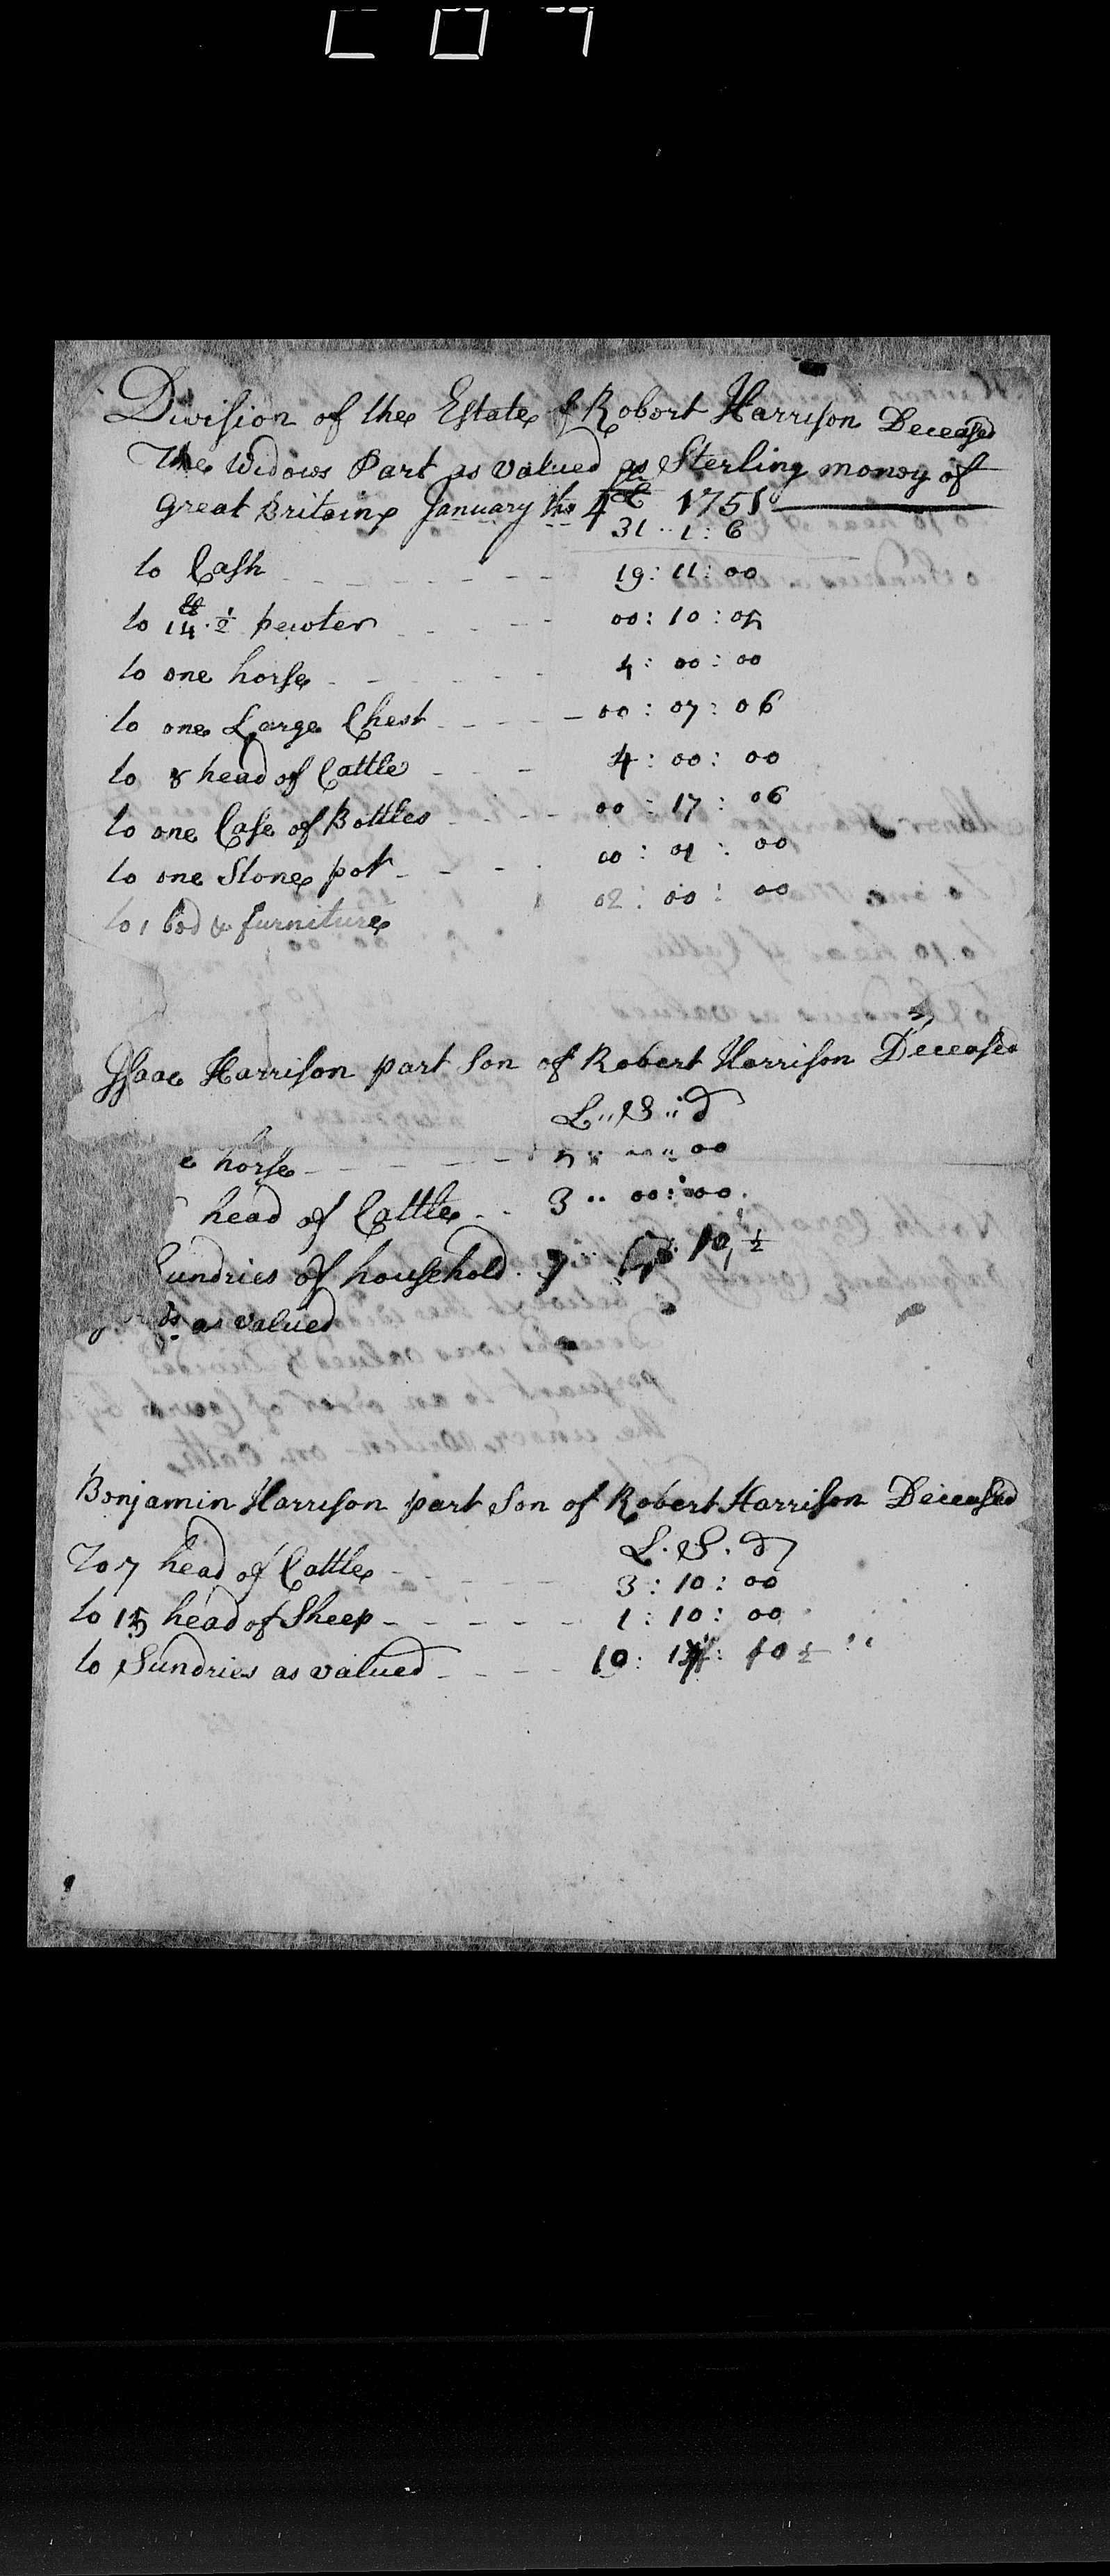 Division of the Estate of Robert Harrison Deceased
The Widows Part as valued as Sterling money of
Great Britain January the 4th 1751
31 : 1 : 6
to Cash 19 : 11 : 00
to 14 lb 1/2 pewter 00 : 10 : 05
to one horse 4 : 00 : 00
to one Large Chest 00 : 07 : 06
to 8 head of Cattle 4 : 00 : 00
to one Case of Bottles 00 : 17 : 06
to one Stone pot 00 : 01 : 00
to 1 bed & furniture 02 : 00 : 00
Isaac Harrison part Son of Robert Harrison Deceased
L .. S .. d
e horse 5 .. 00
head of Cattle 3 .. 00 : 00
Sundries of household 7 10 1/2
as valued
Benjamin Harrison part Son of Robert Harrison Deceased
L . S . d
To 7 head of Cattle 3 : 10 : 00
to 15 head of Sheep 1 : 10 : 00
to Sundries as valued 10 : : 10 1/2